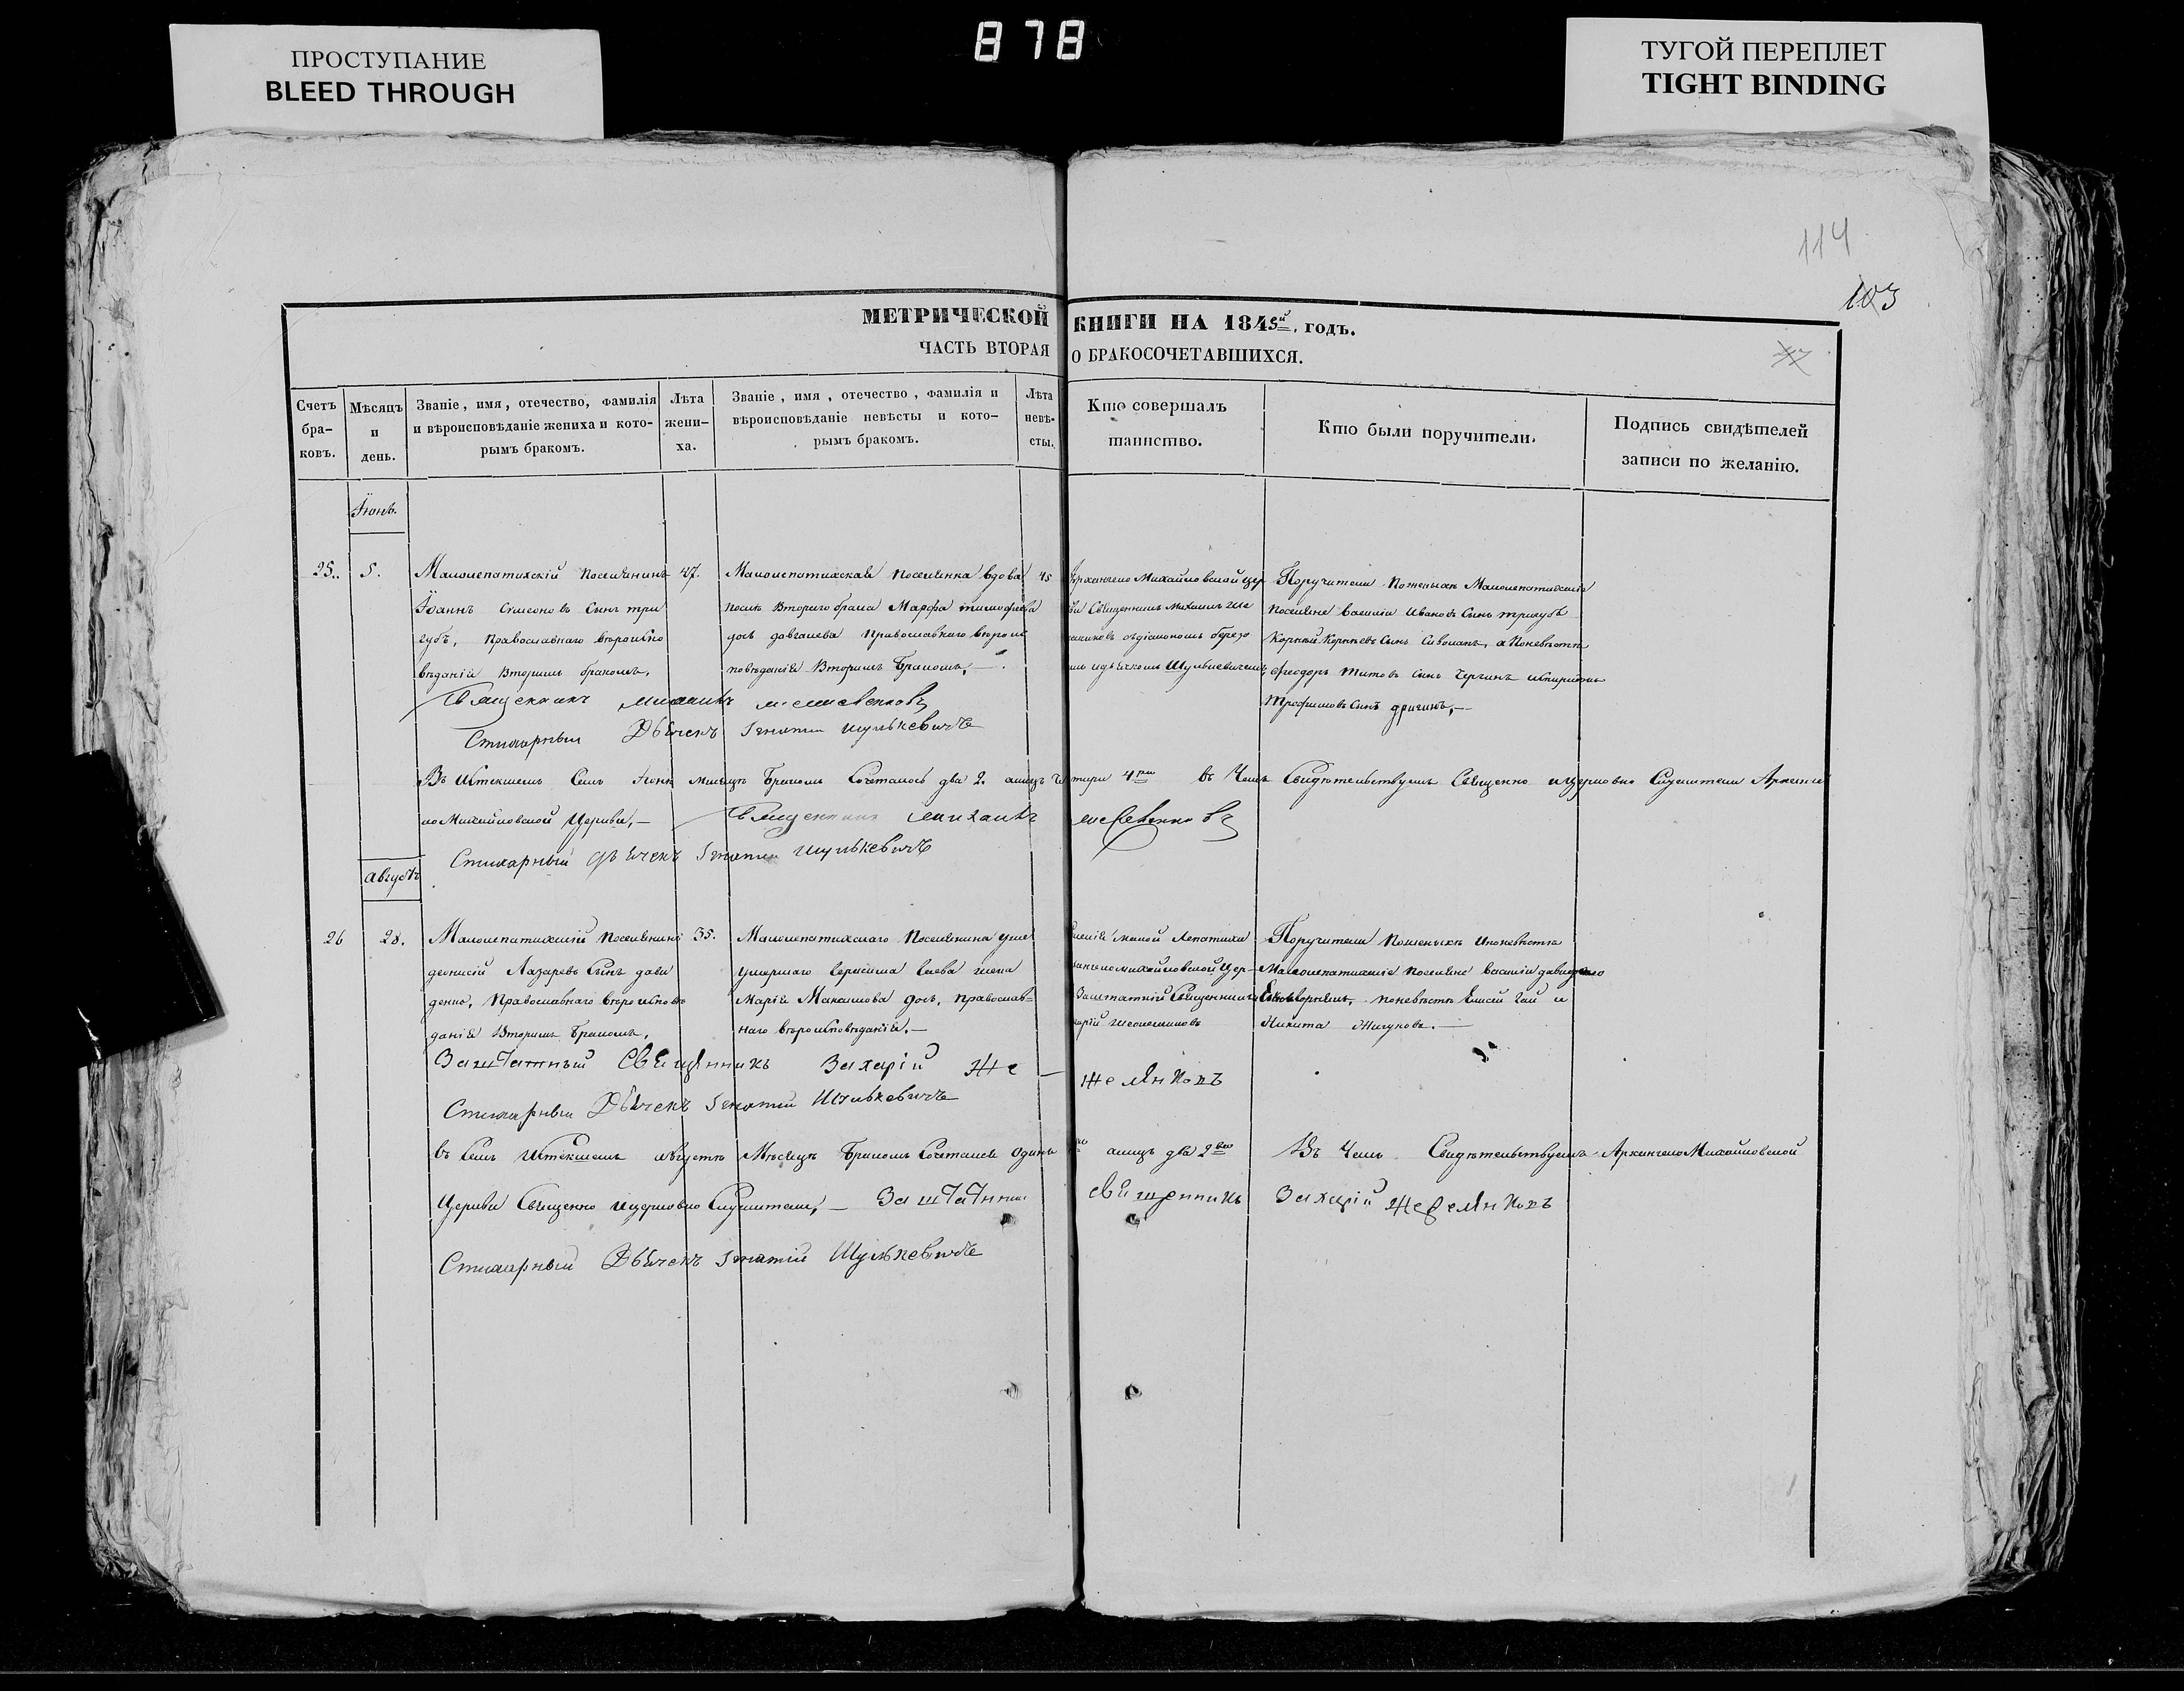 878
ПРОСТУПАНИЕ
BLEED THROUGH
ТУГОЙ ПЕРЕПЛЕТ
TIGHT BINDING
114
103
МЕТРИЧЕСКОЙ КНИГИ НА 1845й. годъ.
ЧАСТЬ ВТОРАЯ О БРАКОСОЧЕТАВШИХСЯ.
Счетъ
бра-
ковъ.
Мѣсяцъ
и
день.
Званіе, имя, отечество, фамилія
и вѣроисповѣданіе жениха и кото-
рымъ бракомъ.
Лѣта
жени-
ха.
Званіе, имя, отечество, фамилія и
вѣроисповѣданіе невѣсты и кото-
рымъ бракомъ.
Лѣта
невѣ-
сты.
Кто совершалъ
таинство.
Кто были поручители.
Подпись свидѣтелей
записи по желанію.
Іюнь.
25. 5.
Малолепатихскій поселянинъ
Іоаннъ Симеоновъ сынъ три
губъ, православнаго вѣроиспо
вѣданія вторымъ бракомъ,
47.
Малолепатихская поселянка вдова
послѣ втораго брака Марфа тимофеева
дочь православнаго вѣроис
повѣданія вторымъ бракомъ, —
45
Архангело Михайловской цер
кви Священникъ Михаилъ
съ діакономъ
и дьячкомъ Шулькевичемъ
Поручители по женихѣ Малолепатихскіе
поселяне василій Ивановъ сынъ тригубъ
Корній Корнѣевъ сынъ а по невѣстѣ
феодоръ Титовъ сынъ
Трофимовъ сынъ —
Священникъ Михаилъ
Стихарный Дьячекъ Игнатій Шулькевичъ
Въ истекшемъ семъ Іюнѣ мѣсяцѣ бракомъ сочеталось два 2. а лицъ четыри 4ри въ чемъ свидѣтельствуемъ священно и церковно служители Архангело
Михайловской Церкви, — Священникъ Михаилъ
Стихарный Дьячекъ Игнатій Шулькевичъ
августъ
26 28.
Малолепатихскій поселянинъ
деонисій Лазаревъ сынъ дави
денко, православнаго вѣроисповѣ
данія вторымъ бракомъ,
35.
Малолепатихскаго поселянина уже
умершаго жена
Марія Максимова дочь, православ-
наго вѣроисповѣданія, —
малой Лепатихи
Архангело Михайловской Цер-
Заштатный Священникъ
Поручители по женихѣ и по невѣстѣ
Малолепатихскіе поселяне василій давиденко
по невѣстѣ Елисей Гай и
Никита Жигуновъ. —
Заштатный Священникъ Захарій
Стихарный Дьячекъ Игнатій Шулькевичъ
въ семъ истекшемъ августѣ мѣсяцѣ бракомъ сочетался одинъ а лицъ два 2ва Въ чемъ свидѣтельствуемъ Архангело Михайловской
Церкви Священно и церковно служители, — Заштатный Священникъ Захарій
Стихарный Дьячекъ Игнатій Шулькевичъ